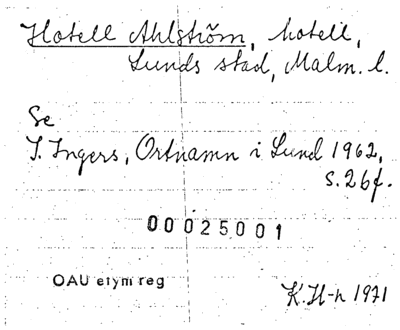 Hotell Ahlström, hotell,
Lunds stad, Malm. l.
Se
I. Ingers, Ortnamn i Lund 1962,
s. 26 f.
00025001
OAU etym reg
K. H-n 1971